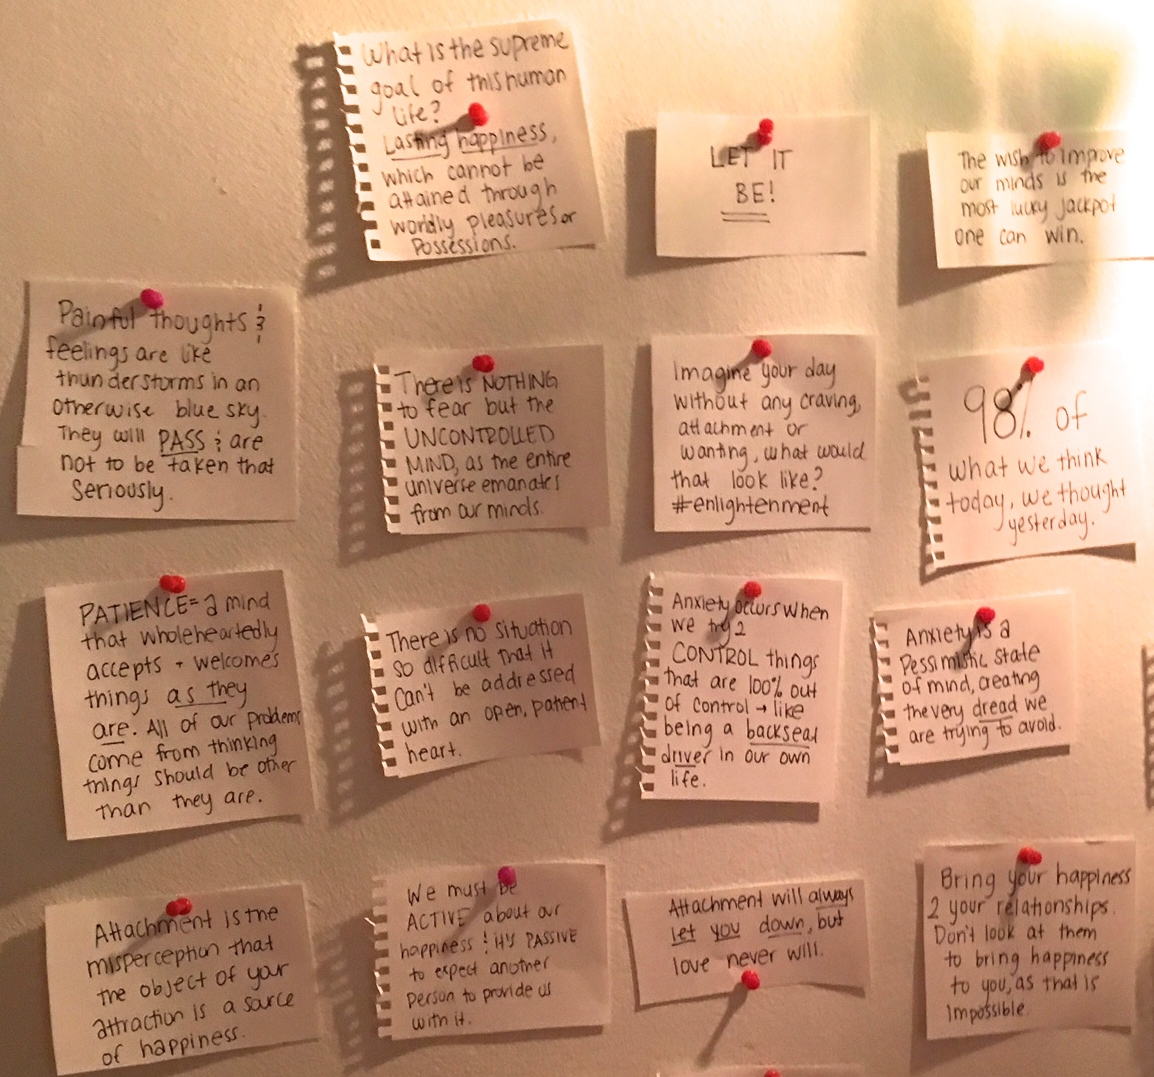 What is the supreme
goal of this human
life?
Lasting happiness,
which cannot be
attained through
worldly pleasures or
possessions.
LET IT
BE!
The wish to improve
our minds is the
most lucky jackpot
one can win.
Painful thoughts &
feelings are like
thunderstorms in an
otherwise blue sky.
They will PASS & are
not to be taken that
seriously.
There is NOTHING
to fear but the
UNCONTROLLED
MIND, as the entire
universe emanates
from our minds.
Imagine your day
without any craving,
attachment or
wanting, what would
that look like?
#enlightenment
98% of
what we think
today, we thought
yesterday.
PATIENCE= a mind
that wholeheartedly
accepts + welcomes
things as they
are. All of our problems
come from thinking
things should be other
than they are.
There is no situation
so difficult that it
can't be addressed
with an open, patient
heart.
Anxiety occurs when
we try 2
CONTROL things
that are 100% out
of control → like
being a backseat
driver in our own
life.
Anxiety is a
pessimistic state
of mind, creating
the very dread we
are trying to avoid.
Attachment is the
misperception that
the object of your
attraction is a source
of happiness.
We must be
ACTIVE about our
happiness & it's PASSIVE
to expect another
person to provide us
with it.
Attachment will always
let you down, but
love never will.
Bring your happiness
2 your relationships.
Don't look at them
to bring happiness
to you, as that is
impossible.